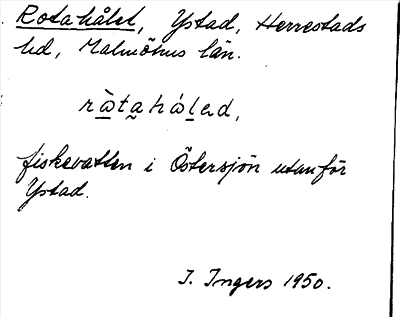 Rotahålet, Ystad, Herrestads
hd, Malmöhus län.
ràtahálad,
fiskevatten i Östersjön utanför
Ystad.
I. Ingers 1950.